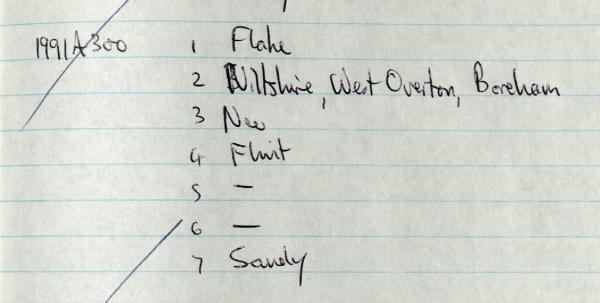 1991A300 1 Flake
2 Wiltshire, West Overton, Boreham
3 Neo
4 Flint
5 —
6 —
7 Sandy